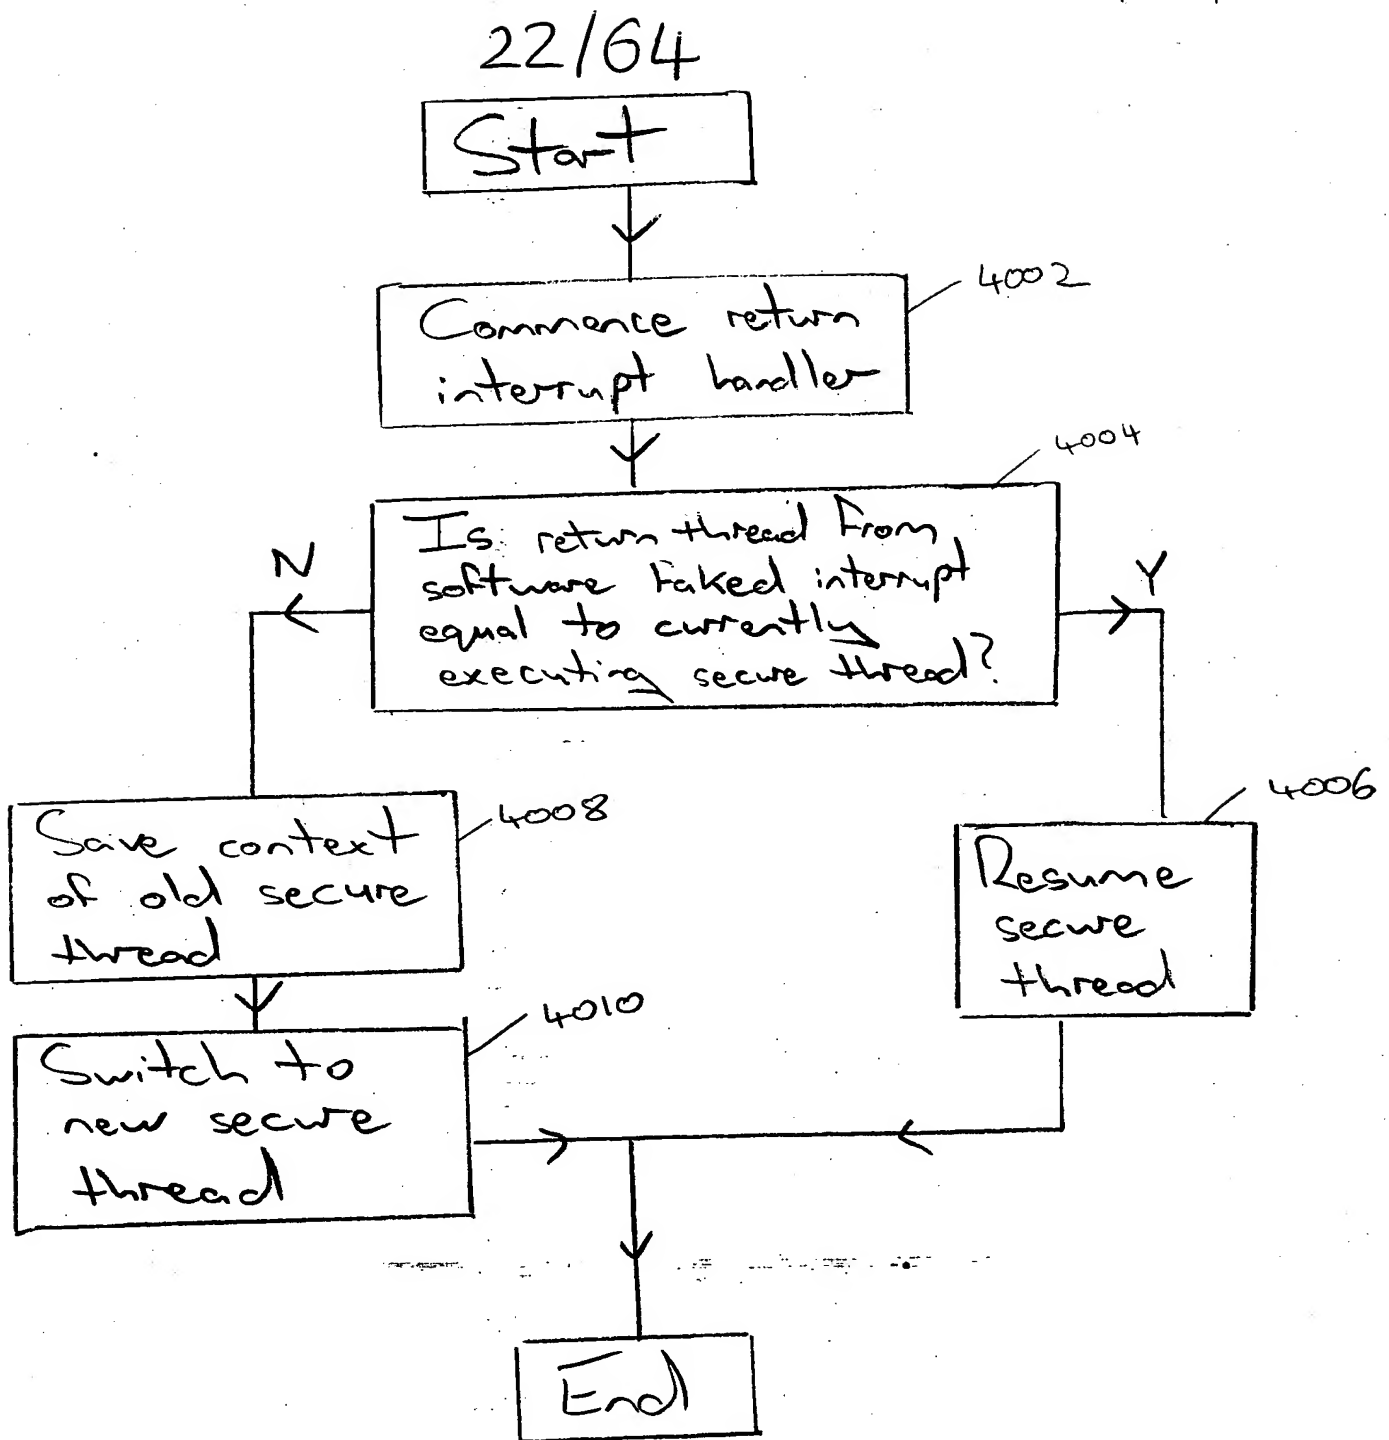 22/64
Start
Commence return
interrupt handler
4002
4004
Is return thread from
software faked interrupt
equal to currently
executing secure thread?
N
Y
Save context
of old secure
thread
4008
4006
Resume
secure
thread
Switch to
new secure
thread
4010
End